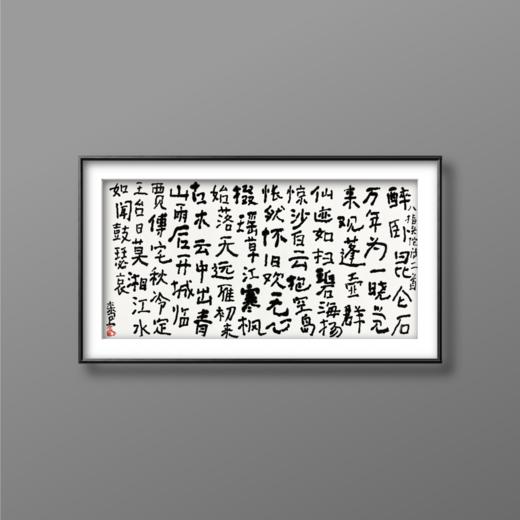 八指头陀诗二首
醉卧昆仑石
万年为一晓觉
来观蓬壶群
仙迹如扫碧海扬
惊沙白云抱岛
怅然怀旧欢无心
掇瑶草江寒枫
始落天远雁初来
古木云中出青
山雨后开城临
贾傅宅秋冷定
王台日莫湘江水
如闻鼓瑟哀